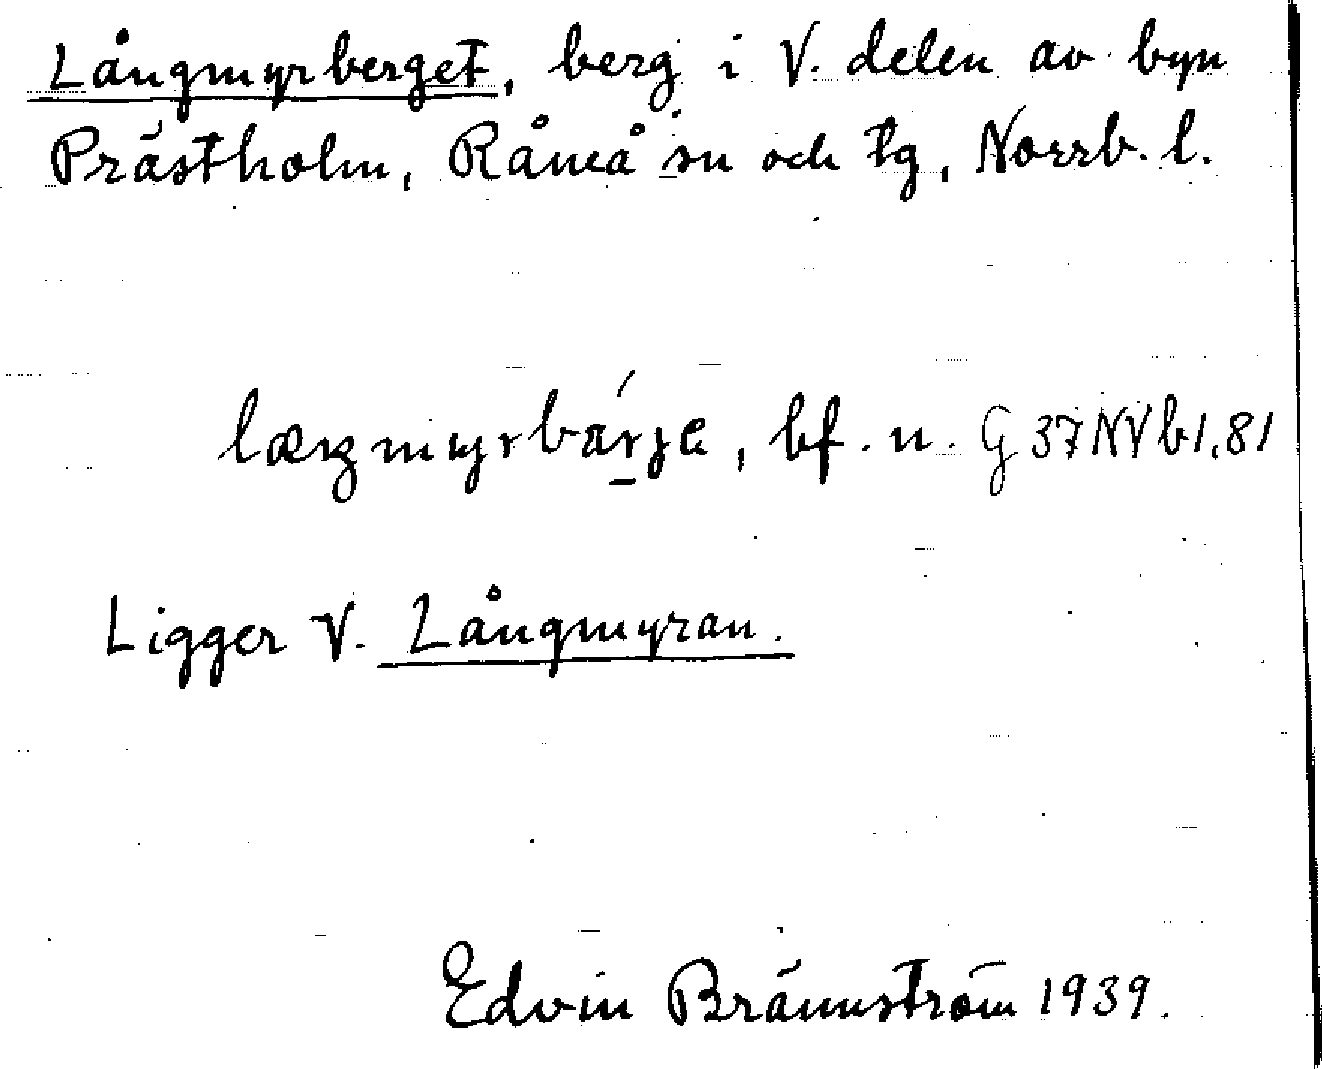 Långmyrberget, berg i V. delen av byn
Prästholm, Råneå sn och tg, Norrb. l.
bf. n. G 37 NV bl. 81
Ligger V. Långmyran.
Edvin Brännström 1939.